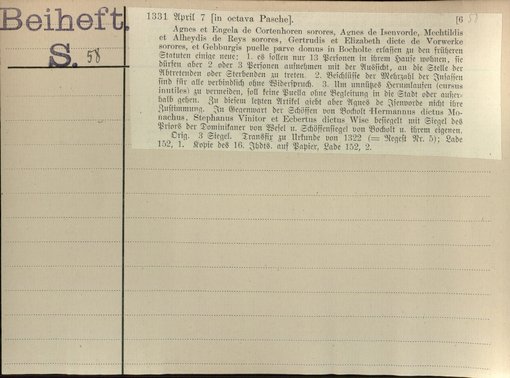 Beiheft.
S. 58
1331 April 7 [in octava Pasche]. [6
Agnes et Engela de Cortenhoren sorores, Agnes de Isenvorde, Mechtildis
et Alheydis de Reys sorores, Gertrudis et Elizabeth dicte de Vorwerke
sorores, et Gebburgis puelle parve domus in Bocholte erlassen zu den früheren
Statuten einige neue: 1. es sollen nur 13 Personen in ihrem Hause wohnen, sie
dürfen aber 2 oder 3 Personen aufnehmen mit der Aussicht, an die Stelle der
Abtretenden oder Sterbenden zu treten. 2. Beschlüsse der Mehrzahl der Insassen
sind für alle verbindlich ohne Widerspruch. 3. Um unnützes Herumlaufen (cursus
inutiles) zu vermeiden, soll keine Puella ohne Begleitung in die Stadt oder außer-
halb gehen. Zu diesem letzten Artikel giebt aber Agnes de Isenvorde nicht ihre
Zustimmung. In Gegenwart der Schöffen von Bocholt Hermannus dictus Mo-
nachus, Stephanus Vinitor et Ecbertus dictus Wise besiegelt mit Siegel des
Priors der Dominikaner von Wesel u. Schöffensiegel von Bocholt u. ihrem eigenen.
Orig. 3 Siegel. Transfix zu Urkunde von 1322 (= Regest Nr. 5); Lade
152, 1. Kopie des 16. Jhdts. auf Papier, Lade 152, 2.